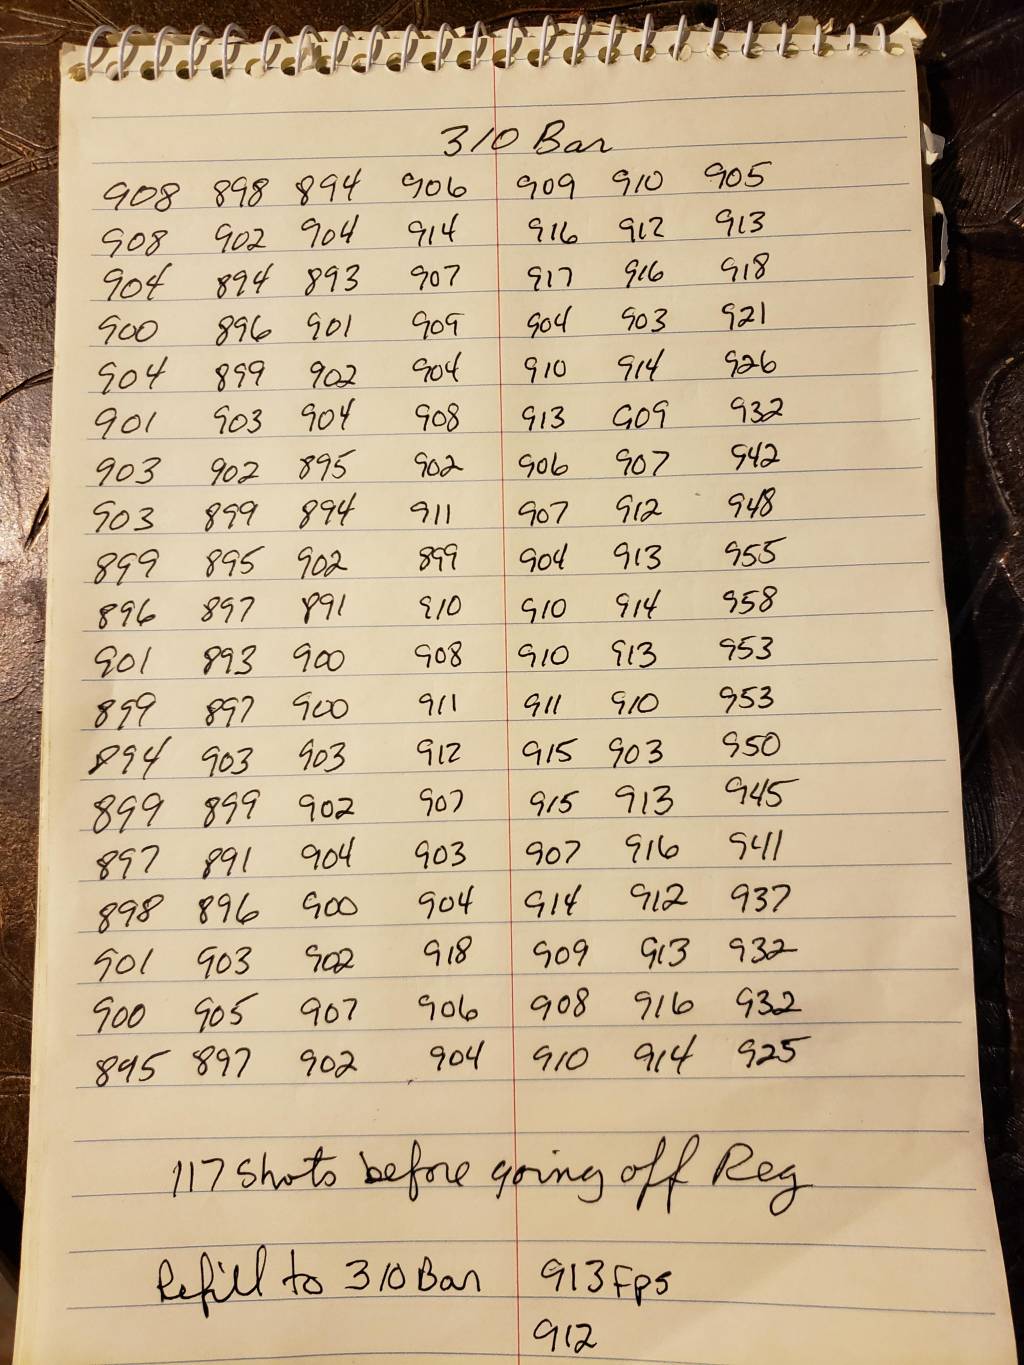 310 Bar
908 898 894 906 909 910 905
908 902 904 914 916 912 913
904 894 893 907 917 916 918
900 896 901 909 904 903 921
904 899 902 904 910 914 926
901 903 904 908 913 909 932
903 902 895 902 906 907 942
903 899 894 911 907 912 948
899 895 902 899 904 913 955
896 897 891 910 910 914 958
901 893 900 908 910 913 953
899 897 900 911 911 910 953
894 903 903 912 915 903 950
899 899 902 907 915 913 945
897 891 904 903 907 916 941
898 896 900 904 914 912 937
901 903 902 918 909 913 932
900 905 907 906 908 916 932
895 897 902 904 910 914 925
117 Shots before going off Reg
Refill to 310 Bar 913 Fps
912